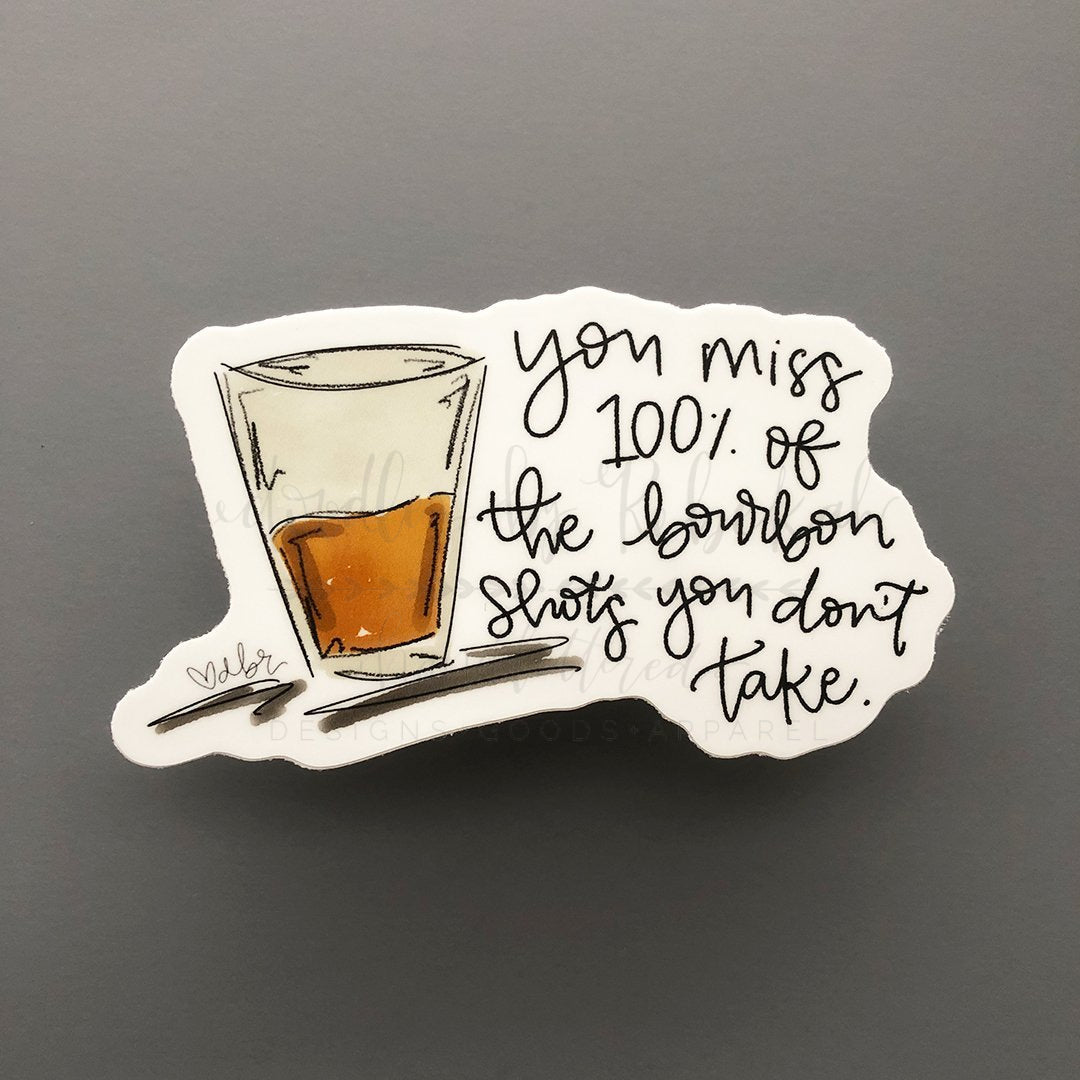 you miss
100% of
the bourbon
shots you don't
take.
♡dbr
DESIGNS•GOODS•APPAREL